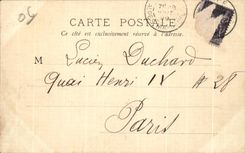 05
CARTE POSTALE
Ce côté est exclusivement réservé à l'adresse.
M Lucien Duchard
Quai Henri IV # 28
Paris